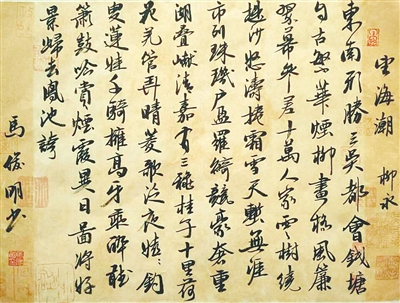 望海潮 柳永
東南形勝三吳都會錢塘
自古繁華煙柳畫橋風簾
翠幕參差十萬人家雲樹繞
堤沙怒濤捲霜雪天塹無涯
市列珠璣戶盈羅綺競豪奢重
湖疊巘清嘉有三秋桂子十里荷
花羌管弄晴菱歌泛夜嬉〻釣
叟蓮娃千騎擁高牙乘醉聽
簫鼓吟賞煙霞異日圖將好
景歸去鳳池誇
馬俊明书